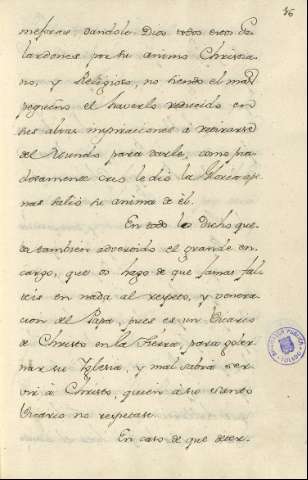 36
mejoras, dandole Dios todos estos Ga-
lardones por su animo Christia-
no, y Religioso, no siendo el mas
pequeño el haverlo reducido en
sus altas inspiraciones á retirarse
del Mundo para darle, como pia-
dosamente creo le dio la Gloria ape-
nas salió su anima de él.
En todo lo Dicho que-
da tambien advertido el grande en-
cargo, que os hago de que jamas fal-
teis en nada al respeto, y venera-
cion del Papa, pues es un Vicario
de Christo en la tierra, para gober-
nar su Iglesia, y mal sabrá ser-
vir á Christo, quien á su siendo
Vicario no respetase.
En caso de que deter-
BIBLIOTECA PUBLICA
TOLEDO